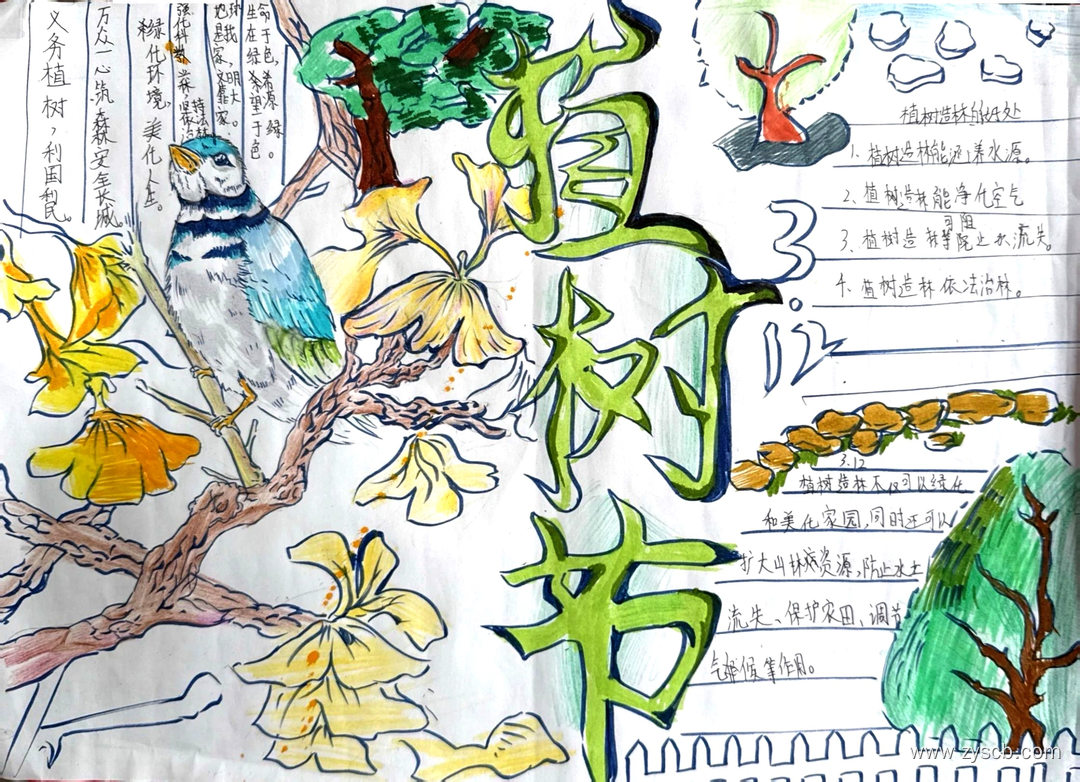 植树节
3.12
义务植树,利国利民。
万众一心筑森安全长城。
绿化环境,美化人生。
生命在于绿色,
希望源于绿色。
植树造林的好处
1、植树造林能涵养水源。
2、植树造林能净化空气
3、植树造林能阻止水流失。
4、植树造林依法治林。
3.12
植树造林不仅可以绿化
和美化家园,同时还可以
扩大山林资源、防止水土
流失、保护农田、调节
气候等作用。
www.zyscb.com